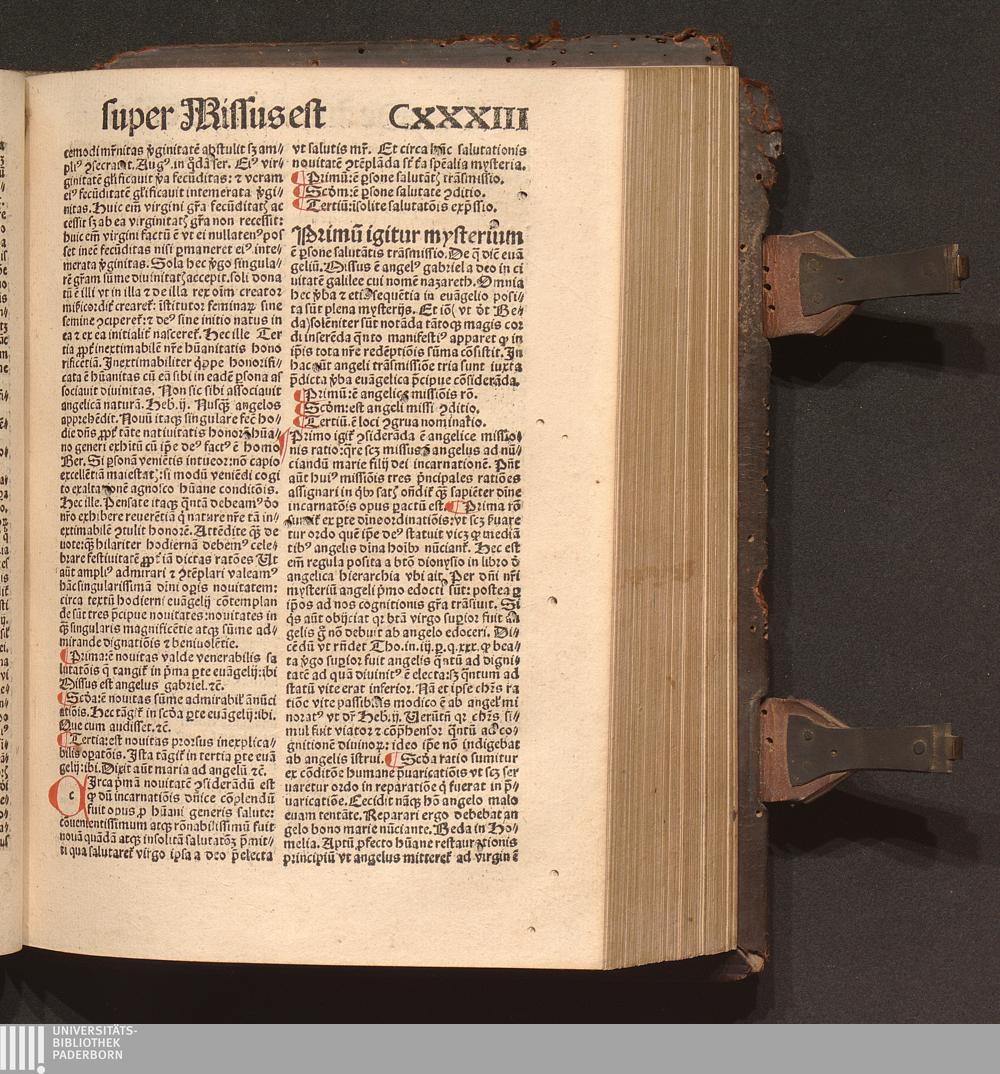 super Missus est CXXXIII
cemodi mr̄nitas v̄ginitatē abstulit sʒ am//
pliꝰ ꝯsecrauit. Augꝰ. in q̄dā ser. Eiꝰ vir//
ginitatē gl̄ificauit v̄a fecūditas: ⁊ veram
eiꝰ fecūditatē gl̄ificauit intemerata v̄gi//
nitas. Huic em̄ virgini gr̄a fecūditatꝫ ac
cessit sʒ ab ea virginitatꝫ gr̄a non recessit:
huic em̄ virgini factū ē vt ei nullatenꝰ pos
set inee fecūditas nisi ꝑmaneret eiꝰ inte//
merata v̄ginitas. Sola hec v̄go singula//
rē gr̄am sūme diuinitatꝫ accepit. soli dona
tū ē illi vt in illa ⁊ de illa rex oīm creator
mīsicordit̄ crearet̄: īstitutor feminaꝝ sine
semine ꝯciperet̄: ⁊ deꝰ sine initio natus in
ea ⁊ ex ea initialit̄ nasceret̄. Hec ille Ter
tia ꝓpt̄ inextimabilē nr̄e hūanitatis hono
rificētiā. Inextimabiliter q̄ppe honorifi//
cata ē hūanitas cū eā sibi in eadē ꝑsona as
sociauit diuinitas. Non sic sibi associauit
angelicā naturā. Heb. ij. Nusqꝫ angelos
apprehēdit. Nouū itaqꝫ singulare fec̄ ho//
die dn̄s ꝓpt̄ tāte natiuitatis honorē hūa//
no generi exhitū cū ip̄e deꝰ factꝰ ē homo
Ber. Si ꝑsonā veniētis intueor: nō capio
excellētiā maiestatꝫ: si modū veniēdi cogi
to exaltationē agnosco hūane conditōis.
Hec ille. Pensate itaqꝫ q̄ntā debeamꝰ dō
nr̄o exhibere reuerētiā q̄ nature nr̄e tā in//
extimabilē ꝯtulit honorē. Attēdite qꝫ de
uote: qꝫ hilariter hodiernā debemꝰ cele//
brare festiuitatē ꝓpt̄ iā dictas ratōes Ut
aūt ampliꝰ admirari ⁊ ꝯtēplari valeamꝰ
hāc singularissimā diui oꝑis nouitatem:
circa textū hodierni euāgelij cōtemplan
de sūt tres p̄cipue nouitates: nouitates in
qꝫ singularis magnificētie atqꝫ sūme ad//
mirande dignatiōis ⁊ beniuolētie.
¶ Prima: ē nouitas valde venerabilis sa
lutatōis q̄ tangit̄ in p̄ma ꝑte euāgelij: ibi
Missus est angelus gabriel. ⁊c̄.
¶ Scd̄a: ē nouitas sūme admirabil̄ ānūci
atiōis. Hec tāgit̄ in scd̄a ꝑte euāgelij: ibi.
Que cum audisset. ⁊c̄.
¶ Tertia: est nouitas prorsus inexplica//
bilis oꝑatōis. Ista tāgit̄ in tertia ꝑte euā
gelij: ibi. Dixit aūt maria ad angelū ⁊c̄.
Circa p̄mā nouitatē ꝯsiderādū est
ꝙ dū incarnatiōis dn̄ice cōplendū
fuit opus ꝓ hūani generis salute:
conuenientissimum atqꝫ rōnabilissimū fuit
nouā quādā atqꝫ insolitā salutatōꝫ p̄mit//
ti qua salutaret̄ virgo ipsa a deo p̄electa
vt salutis mr̄. Et circa hāc salutationis
nouitatē ꝯtēplāda st̄ t̄a spēalia mysteria.
¶ Primū: ē ꝑsone salutātꝫ trāsmissio.
¶ Scd̄m: ē ꝑsone salutate ꝯditio.
¶ Tertiū: īsolite salutatōis exp̄ssio.
Primū igitur mysterium
ē ꝑsone salutātis trāsmissio. De q̄ dic̄ euā
geliū. Missus ē angelꝰ gabriel a deo in ci
uitatē galilee cui nomē nazareth. Omnia
hec v̄ba ⁊ eti ꝯsequētia in euāgelio posi//
ta sūt plena mysterijs. Et iō( vt dt̄ Be//
da)solēniter sūt notāda tātoqꝫ magis cor
di inserēda q̄nto manifestiꝰ apparet ꝙ in
ip̄is tota nr̄e redēptiōis sūma cōsistit. In
hac aūt angeli trāsmissiōe tria sunt iuxta
p̄dicta v̄ba euāgelica p̄cipue cōsiderāda.
¶ Primū: ē angelice missiōis rō.
¶ Scd̄m: est angeli missi ꝯditio.
¶ Tertiū: ē loci ꝯgrua nominatio.
Primo igit̄ ꝯsiderāda ē angelice missio
nis ratio: qre scꝫ missus ē angelus ad nū//
ciandū marie filij dei incarnationē. Pn̄t
aūt huiꝰ missiōis tres p̄ncipales ratiōes
assignari in qbꝰ satꝫ on̄dit̄ qꝫ sapiēter dīne
incarnatōis opus ꝑactū est. ¶ Prima rō
sumit̄ ex ꝑte dīne ordinatiōis: vt scꝫ ẜuare
tur ordo quē ip̄e deꝰ statuit vicꝫ ꝙ mediā
tibꝰ angelis dīna hoībꝰ nūciant̄. Hec est
em̄ regula posita a btō dionysio in libro d̄
angelica hierarchia vbi ait. Per dn̄i nr̄i
mysteriū angeli p̄mo edocti sūt: postea ꝑ
ip̄os ad nos cognitionis gr̄a trāsiuit. Si
q̄s aūt obijciat qr btā virgo suꝑior fuit ā
gelis q̄ nō debuit ab angelo edoceri. Di//
cēdū vt rn̄det Tho. in. iij. ꝑ. q. xxx. ꝙ bea//
ta v̄go suꝑior fuit angelis q̄ntū ad digni//
tatē ad quā diuinitꝰ ē electa: sʒ q̄ntum ad
statū vite erat inferior. Nā et ipse chr̄s ra
tiōe vite passibil̄s modico ē ab angelꝭ mi
noratꝰ vt dr̄ Heb. ij. Uerūtn̄ qr chr̄s si//
mul fuit viator ⁊ cōp̄hensor q̄ntū ad co//
gnitionē diuinoꝝ: ideo ip̄e nō indigebat
ab angelis īstrui. ¶ Scd̄a ratio sumitur
ex cōditōe humane p̄uaricatiōis vt scꝫ ser
uaretur ordo in reparatiōe q̄ fuerat in p̄//
uaricatiōe. Cecidit nāqꝫ hō angelo malo
euam tentāte. Reparari ergo debebat an
gelo bono marie nūciante. Beda in Ho//
melia. Aptū ꝓfecto hūane restaurationis
principiū vt angelus mitteret̄ ad virginē
UNIVERSITÄTS-
BIBLIOTHEK
PADERBORN